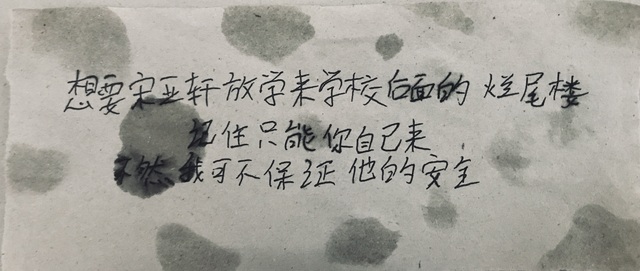 想要宋亚轩放学来学校后面的 烂尾楼
记住只能你自己来
不然我可不保证他的安全